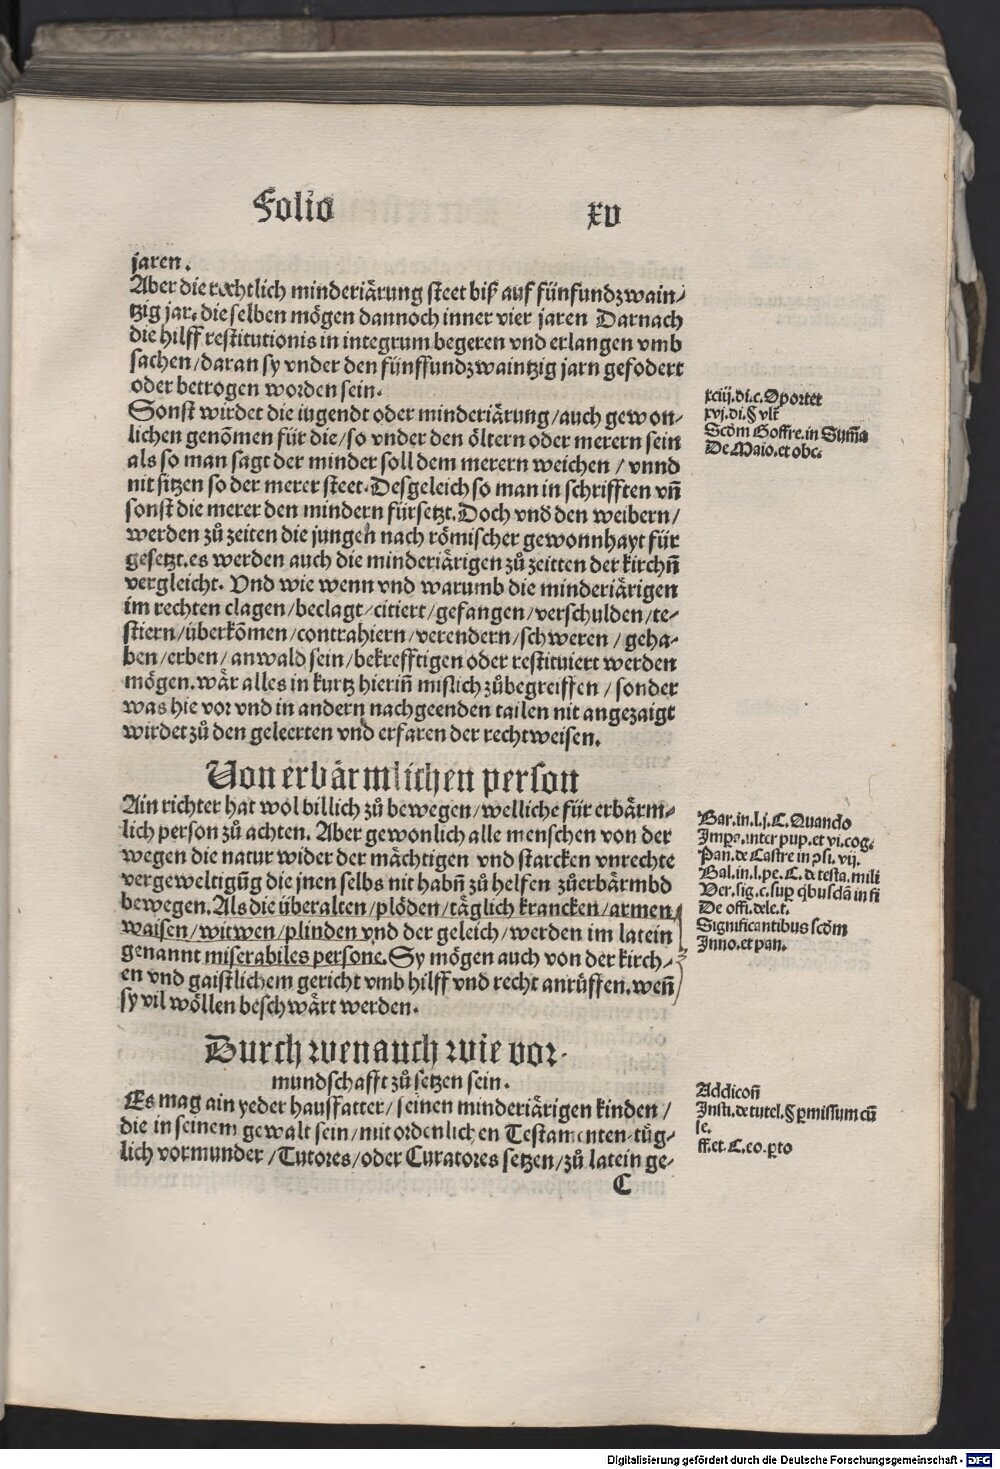 Folio xv
jaren.
Aber die rechtlich minderiärung steet biß auf fünfundzwain/
tzig jar. die selben mögen dannoch inner vier jaren Darnach
die hilff restitutionis in integrum begeren vnd erlangen vmb
sachen/daran sy vnder den fünffundzwaintzig jarn gefodert
oder betrogen worden sein.
Sonst wirdet die iugendt oder minderiärung/auch gewon-
lichen genõmen für die/so vnder den öltern oder merern sein
als so man sagt der minder soll dem merern weichen/vnnd
nit sitzen so der merer steet. Desgeleich so man in schrifften vñ
sonst die merer den mindern fürsetzt. Doch vnd̃ den weibern/
werden zů zeiten die jungen nach römischer gewonnhayt für
gesetzt. es werden auch die minderiärigen zů zeitten der kirchñ
vergleicht. Vnd wie wenn vnd warumb die minderiärigen
im rechten clagen/beclagt/citiert/gefangen/verschulden/te-
stiern/überkõmen/contrahiern/verendern/schweren/geha-
ben/erben/anwald sein/bekrefftigen oder restituiert werden
mögen. wär alles in kurtz hieriñ mislich zůbegreiffen/sonder
was hie vor vnd in andern nachgeenden tailen nit angezaigt
wirdet zů den geleerten vnd erfaren der rechtweisen.
Von erbärmlichen person
Ain richter hat wol billich zů bewegen/welliche für erbärm-
lich person zů achten. Aber gewonlich alle menschen von der
wegen die natur wider der mächtigen vnd starcken vnrechte
vergeweltigũg die jnen selbs nit habñ zů helfen zůerbärmbd
bewegen. Als die überalten/plöden/täglich krancken/armen
waisen/witwen/plinden vnd der geleich/werden im latein
genannt miserabiles persone. Sy mögen auch von der kirch-
en vnd gaistlichem gericht vmb hilff vnd recht anrüffen. weñ
sy vil wöllen beschwärt werden.
Durch wen auch wie vor-
mundschafft zů setzen sein.
Es mag ain yeder hausfatter/seinen minderiärigen kinden/
die in seinem gewalt sein/mit ordenlichen Testamenten tüg-
lich vormunder/Tutores/oder Curatores setzen/zů latein ge-
C
xciij.di.c.Oportet
xvj.di.§ vlt̃
Scd̃m Goffre.in Sum̃a
De Maio.et obe.
Bar.in.l.j.C.Quando
Imp̃a.inter pup.et vi.cog.
Pan.de Castre in psi. vij.
Bal.in.l.pe.C.de testa.mili
Ver.sig.c.sup q̃busdã in fi
De offi.dele.t.
Significantibus scd̃m
Inno.et pan.
Addicoñ
Insti.de tutel.§ p̱missum cũ
se.
ff.et.C.eo.p̱to
Digitalisierung gefördert durch die Deutsche Forschungsgemeinschaft - DFG